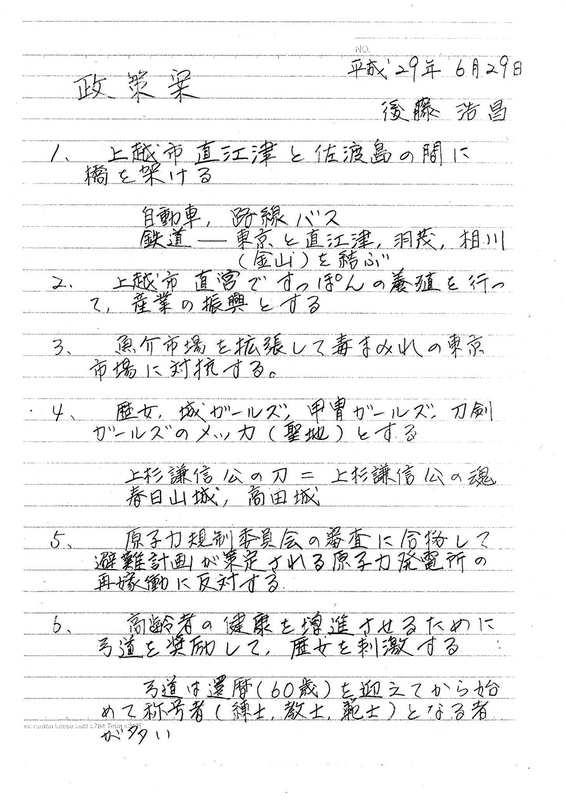 NO.
平成29年 6月29日
政策案
後藤 浩昌
1、 上越市 直江津と佐渡島の間に
橋を架ける
自動車, 路線バス
鉄道 — 東京と直江津, 羽茂, 相川
(金山)を結ぶ
2. 上越市 直営ですっぽんの養殖を行っ
て, 産業の振興とする
3、 魚介市場を拡張して毒まみれの東京
市場に対抗する。
4、 歴女, 城ガールズ, 甲冑ガールズ, 刀剣
ガールズのメッカ(聖地)とする
上杉謙信公の刀 = 上杉謙信公の魂
春日山城, 高田城
5、 原子力規制委員会の審査に合格して
避難計画が策定される原子力発電所の
再嫁働に反対する
6、 高齢者の健康を増進させるために
弓道を奨励して, 歴女を刺激する
弓道は還暦(60歳)を迎えてから始
めて称号者(錬士, 教士, 範士)となる者
が多い